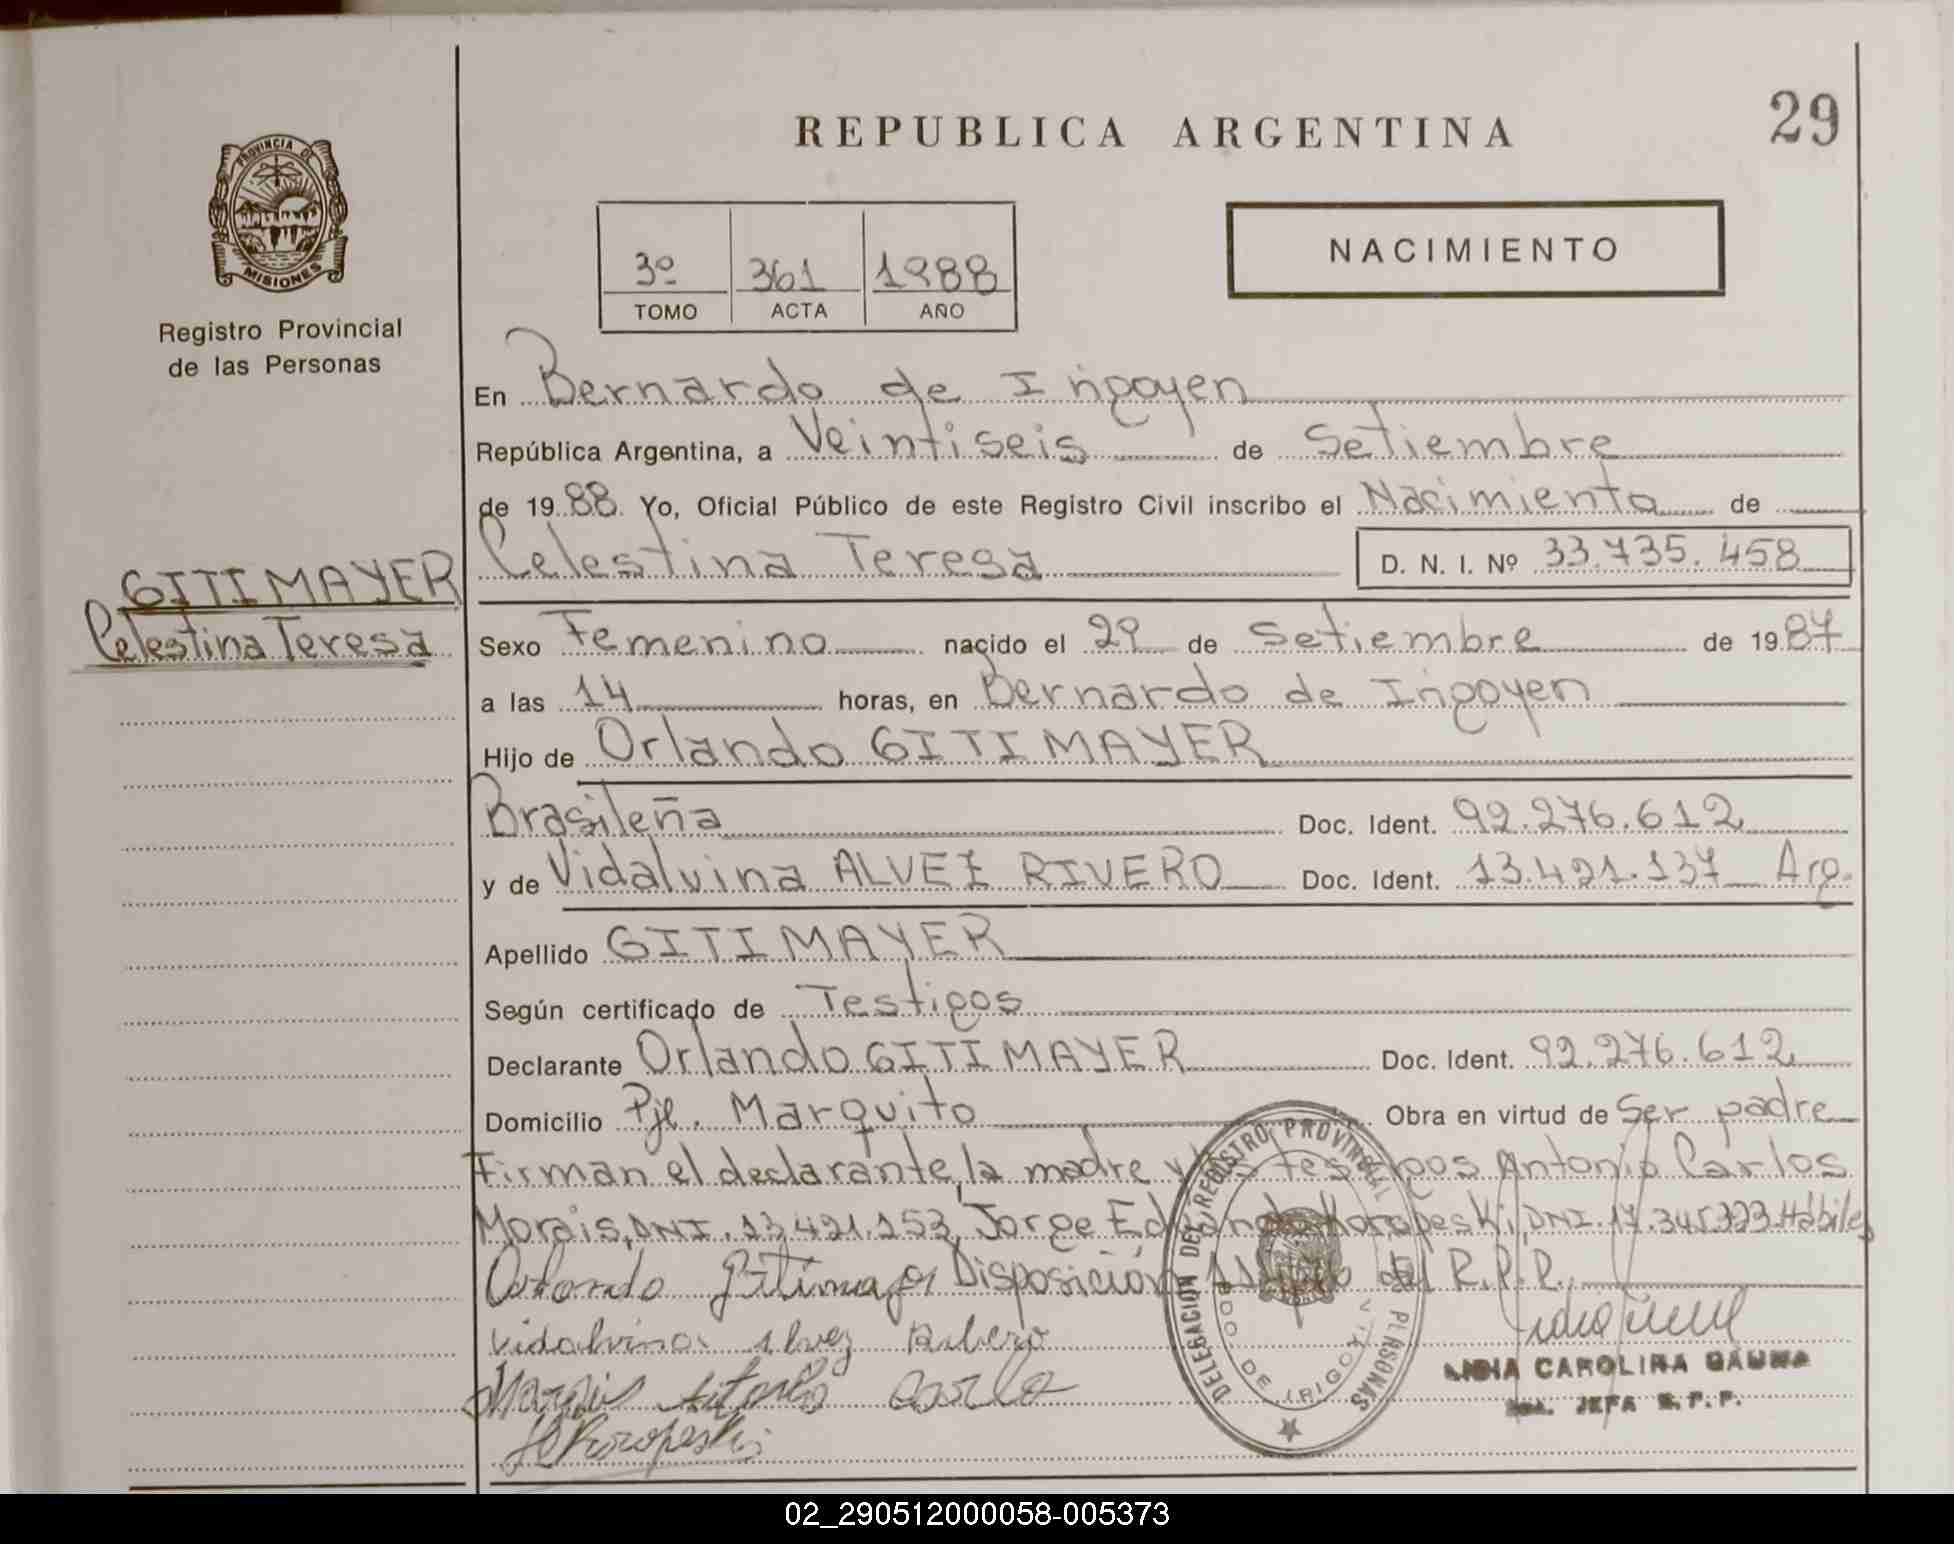 29
REPUBLICA ARGENTINA
PROVINCIA DE
MISIONES
Registro Provincial
de las Personas
3º 361 1988
TOMO ACTA AÑO
NACIMIENTO
En Bernardo de Irigoyen
República Argentina, a Veintiseis de Setiembre
de 1988. Yo, Oficial Público de este Registro Civil inscribo el Nacimiento de
GITIMAYER
Celestina Teresa
Celestina Teresa D. N. I. Nº 33.735.458
Sexo Femenino nacido el 29 de Setiembre de 1987
a las 14 horas, en Bernardo de Irigoyen
Hijo de Orlando GITIMAYER
Brasileña Doc. Ident. 92.276.612
y de Vidalvina ALVEZ RIVERO Doc. Ident. 13.421.137 Arg.
Apellido GITIMAYER
Según certificado de Testigos
Declarante Orlando GITIMAYER Doc. Ident. 92.276.612
Domicilio Pje. Marquito Obra en virtud de Ser padre
Firman el declarante, la madre y los testigos Antonio Carlos
Morais, DNI. 13.421.153, Jorge Eduardo Koropeski, DNI. 17.345.323 Hábiles
Orlando Gitimayer Disposición del R.P.P.
Vidalvina Alvez Ribero
Morais Antonio Carlo
Koropeski
DELEGACION DEL REGISTRO PROVINCIAL DE PERSONAS
BDO DE IRIGOYEN
CAROLINA GAUNA
JEFA R.P.P.
02_290512000058-005373